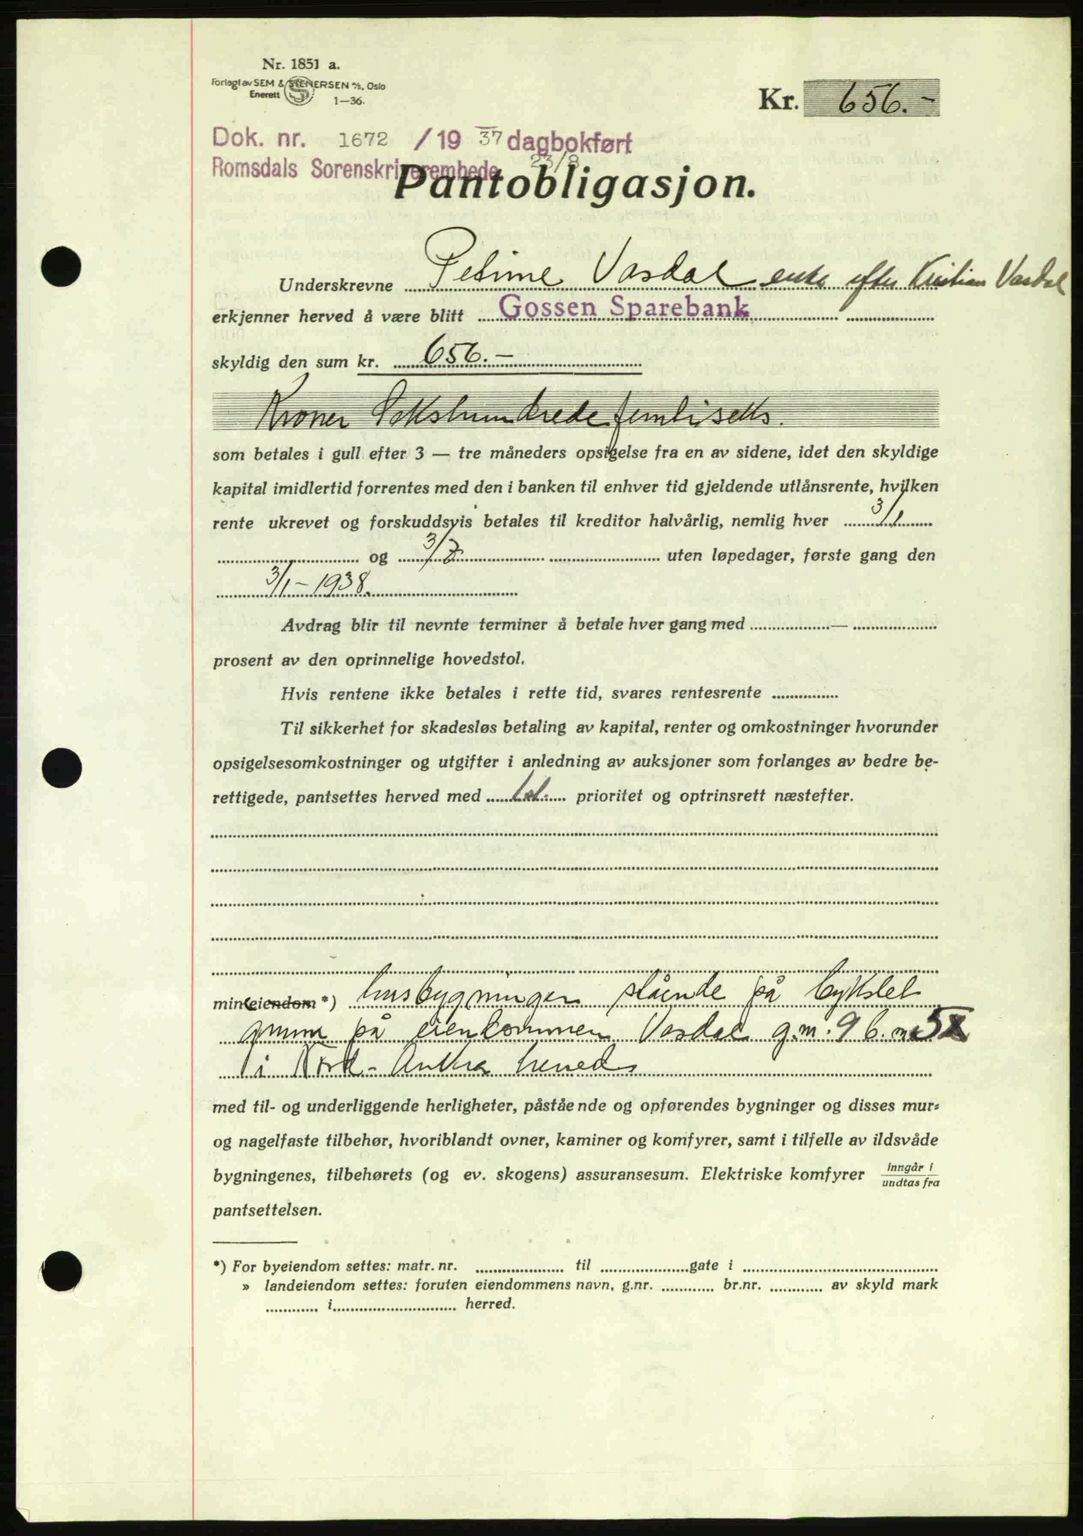 Nr. 1851 a.
Forlagt av SEM & STENERSEN A/S, Oslo
Enerett
1—36.
Kr. 656.-
Dok. nr. 1672 / 19 37 dagbokført
Romsdals Sorenskriverembede 23/8
Pantobligasjon.
Underskrevne Petrine Vasdal enke efter Kristian Vasdal
erkjenner herved å være blitt Gossen Sparebank
skyldig den sum kr. 656.-
Kroner Sekshundrede femtiseks.
som betales i gull efter 3 — tre måneders opsigelse fra en av sidene, idet den skyldige
kapital imidlertid forrentes med den i banken til enhver tid gjeldende utlånsrente, hvilken
rente ukrevet og forskuddsvis betales til kreditor halvårlig, nemlig hver 3/1
og 3/7 uten løpedager, første gang den
3/1-1938.
Avdrag blir til nevnte terminer å betale hver gang med —
prosent av den oprinnelige hovedstol.
Hvis rentene ikke betales i rette tid, svares rentesrente
Til sikkerhet for skadesløs betaling av kapital, renter og omkostninger hvorunder
opsigelsesomkostninger og utgifter i anledning av auksjoner som forlanges av bedre be-
rettigede, pantsettes herved med 1st. prioritet og optrinsrett næstefter.
min eiendom *) husbygninger stående på bykslet
grunn på eiendommen Vasdal g.nr. 9 b.nr. 5
i Nord-Aukra herred
med til- og underliggende herligheter, påstående og opførendes bygninger og disses mur-
og nagelfaste tilbehør, hvoriblandt ovner, kaminer og komfyrer, samt i tilfelle av ildsvåde
bygningenes, tilbehørets (og ev. skogens) assuransesum. Elektriske komfyrer inngår i
undtas fra
pantsettelsen.
*) For byeiendom settes: matr. nr. til gate i
» landeiendom settes: foruten eiendommens navn, g.nr. br.nr. av skyld mark
i herred.